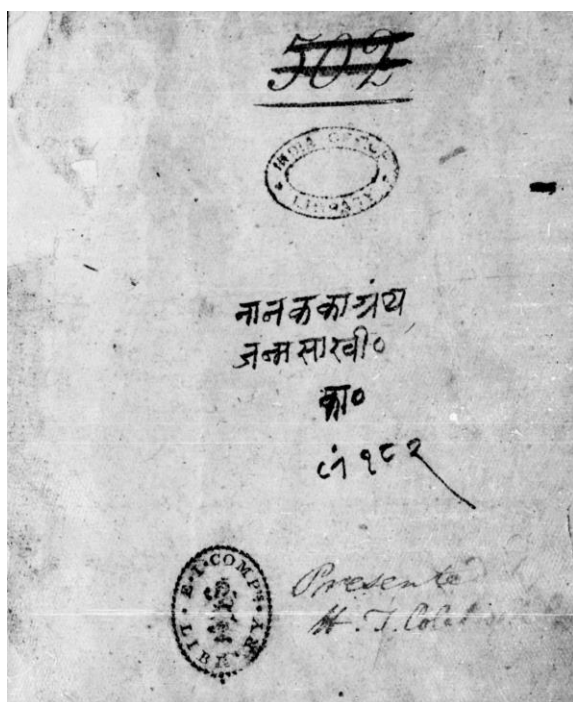 502
INDIA OFFICE LIBRARY
नानक का ग्रंथ
जन्म साखी०
का०
नं १८२
E·I·COMPY'S LIBRARY
Presented
H. T. Cole